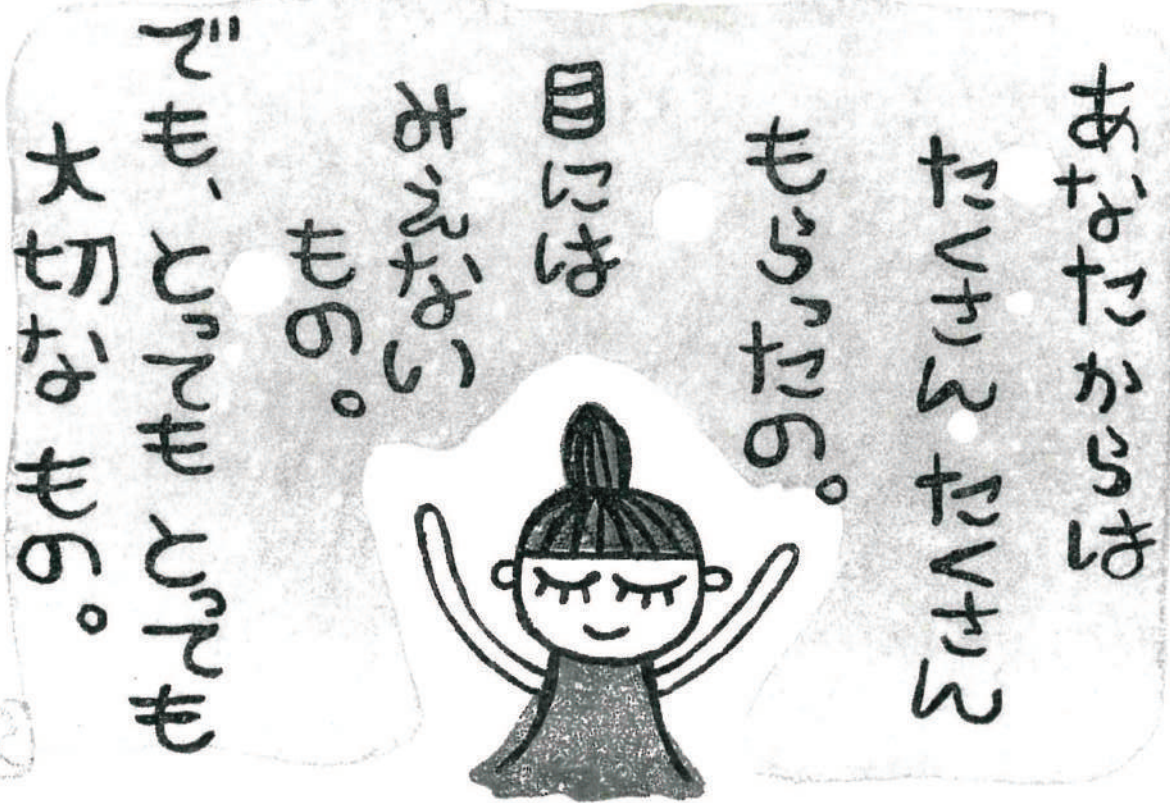 あなたからは
たくさんたくさん
もらったの。
目には
みえない
もの。
でも、とってもとっても
大切なもの。